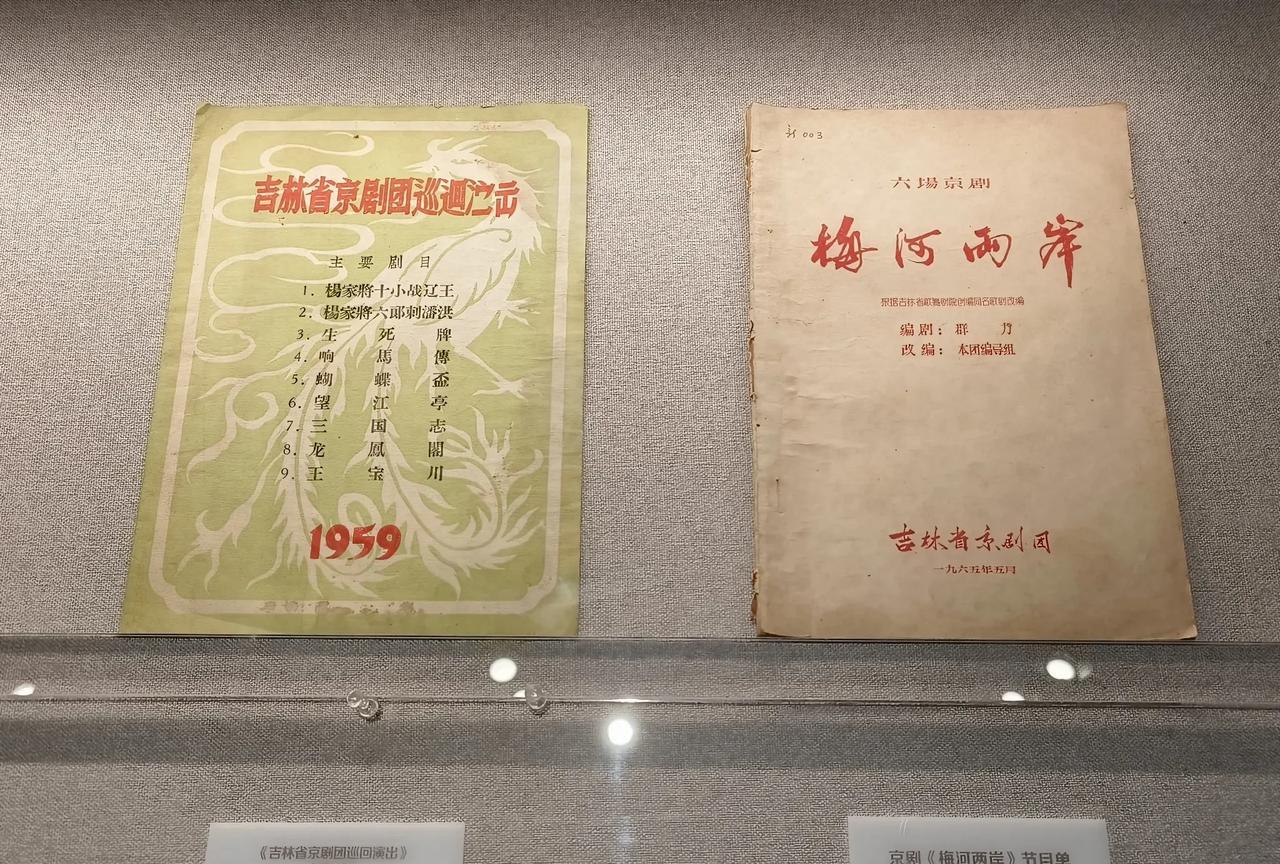 吉林省京剧团巡迴演出
主要剧目
1. 楊家將十小战辽王
2. 楊家將六郎刺潘洪
3. 生死牌
4. 响馬傳
5. 蝴蝶盃
6. 望江亭
7. 三国志
8. 龙鳳閣
9. 王宝川
1959
《吉林省京剧团巡回演出》
新003
六場京剧
梅河兩岸
根据吉林省歌舞剧院创编同名歌剧改编
编剧：群力
改编：本团编导组
吉林省京剧团
一九六五年五月
京剧《梅河两岸》节目单